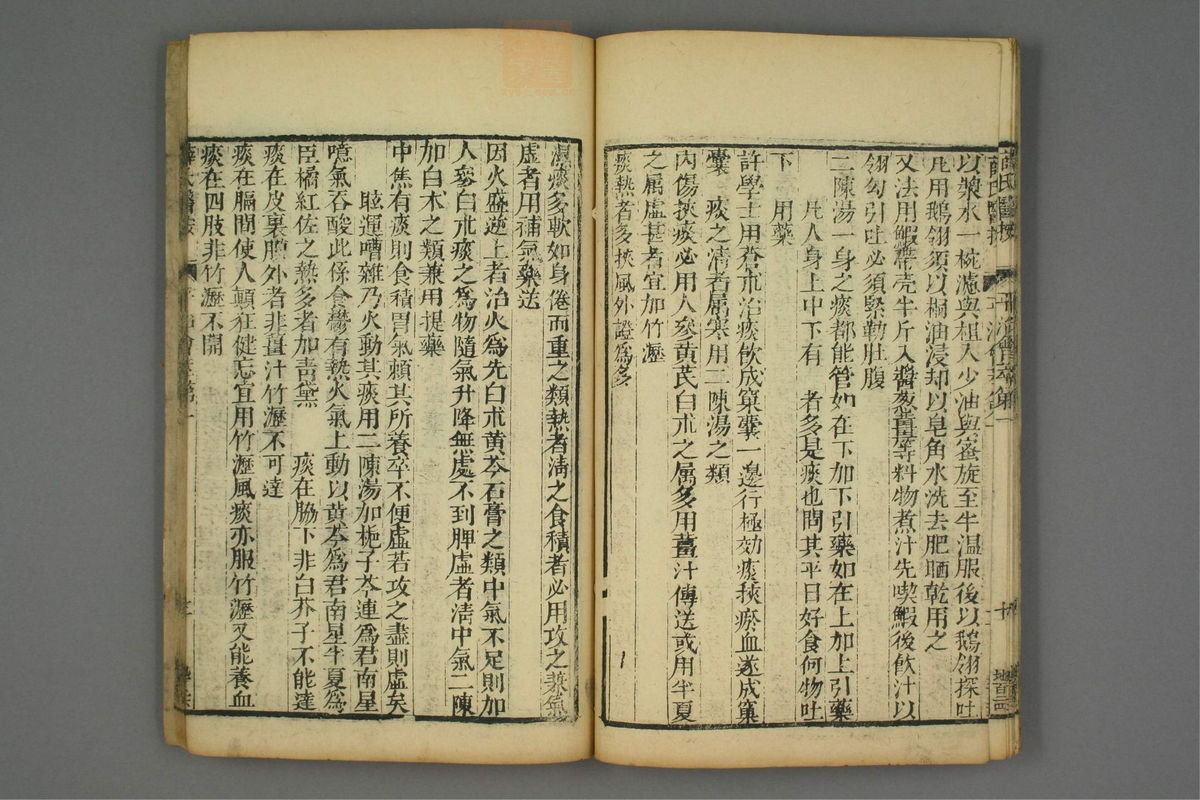 以漿水一椀濾與柤入少油與蜜旋至半温服後以鵝翎探吐
凡用鵝翎須以桐油浸却以皂角水洗去肥晒乾用之
又法用鰕帶壳半斤入醬葱薑等料物煮汁先喫鰕後飲汁以
翎勾引吐必須緊勒肚腹
二陳湯一身之痰都能管如在下加下引藥如在上加上引藥
凡人身上中下有 者多是痰也問其平日好食何物吐
下 用藥
許學士用蒼朮治痰飲成窠囊一邊行極効痰挾瘀血遂成窠
囊 痰之清者属寒用二陳湯之類
內傷挾痰必用人參黄芪白朮之属多用薑汁傳送或用半夏
之属虛甚者宜加竹瀝
痰熱者多挾風外證爲多
濕痰多軟如身倦而重之類熱者清之食積者必用攻之兼氣
虛者用補氣藥送
因火盛逆上者治火爲先白朮黄芩石膏之類中氣不足則加
人參白朮痰之爲物隨氣升降無處不到脾虛者清中氣二陳
加白朮之類兼用提藥
中焦有痰則食積胃氣賴其所養卒不便虛若攻之盡則虛矣
眩運嘈雜乃火動其痰用二陳湯加梔子芩連爲君南星
噫氣吞酸此係食鬱有熱火氣上動以黄芩爲君南星半夏爲
臣橘紅佐之熱多者加青黛 痰在脇下非白芥子不能達
痰在皮裏膜外者非薑汁竹瀝不可達
痰在膈間使人顛狂健忘宜用竹瀝風痰亦服竹瀝又能養血
痰在四肢非竹瀝不開